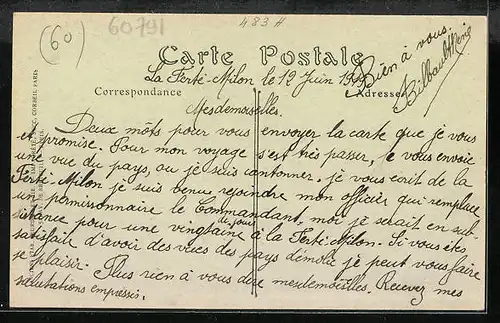 (60)
60791
483 A
Carte Postale
La Ferté-Milon le 12 Juin
Bien à vous.
Correspondance
Adresse
Mesdemoiselles.
Deux môts pour vous envoyer la carte que je vous
et promise. Pour mon voyage s'est très passer, je vous envoie
une vue du pays, ou je suis cantonner. je vous ecrit de la
Ferté-Milon je suis venue rejoindre mon officier qui remplace
un permissionnaire le Commandant, moi je serait en sub
sistance pour une vingtaine de jours à la Ferté-Milon. Si vous êtes
satisfait d'avoir des vues des pays démolie je peut vous faire
se plaisir. Plus rien à vous dire mesdemoiselles. Recevez mes
salutations empressés.